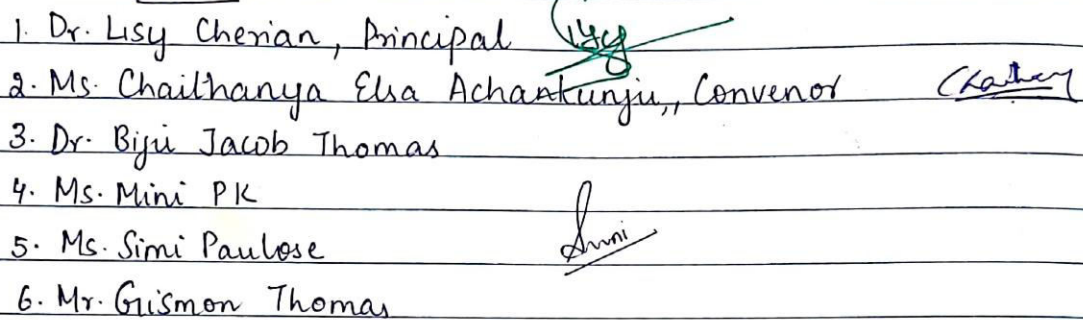 1. Dr. Lisy Cherian, Principal Lisy
2. Ms. Chaithanya Elsa Achankunju,, Convenor
3. Dr. Biju Jacob Thomas
4. Ms. Mini PK
5. Ms. Simi Paulose Simi
6. Mr. Grismon Thomas